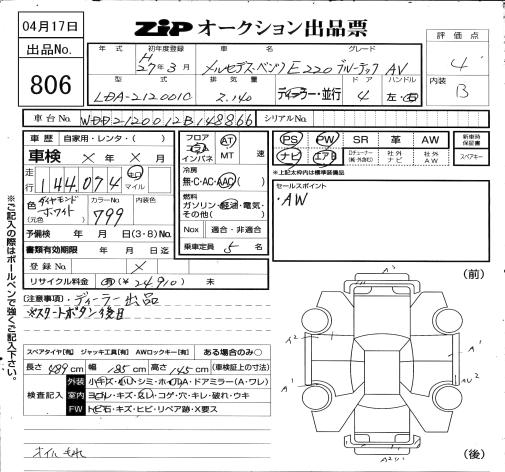 04月17日
ZiP オークション出品票
出品No.
806
年式 初年度登録 車名 グレード
H 27年3月 メルセデス・ベンツ E220 ブルーテック AV
型式 排気量 ドア ハンドル
LDA-212001C 2.140 ディーラー・並行 4 左・右
評価点
4
内装
B
車台No. WDD2120012B148866 シリアルNo.
車歴 自家用・レンタ・( )
車検 × 年 × 月
走行 144.074 キロ マイル
色 ダイヤモンドホワイト (元色) カラーNo. 799 内装色
予備検 年 月 日 (3・8) No.
書類有効期限 年 月 日迄
登録No. ×
リサイクル料金 有(¥ 24910) 未
フロア コラム インパネ
AT MT 速
冷房
無・C・AC・AAC
燃料
ガソリン・軽油・電気・その他( )
Nox 適合・非適合
乗車定員 5 名
PS PW SR 革 AW
ナビ エアB 社外ナビ 社外AW
新車時保証書
スペアキー
※上記太枠内は標準装備品
セールスポイント
・AW
[注意事項]・ディーラー出品
※スタートボタン
スペアタイヤ[有] ジャッキ工具[有] AWロックキー[有] ある場合のみ○
長さ 489 cm 幅 185 cm 高さ 145 cm (車検証上の寸法)
検査記入
外装 小キズ・ハリ・シミ・ホイルA・ドアミラー(A・ワレ)
室内 ヨゴレ・キズ・スレ・コゲ・穴・キレ・破れ・ウキ
FW トビ石・キズ・ヒビ・リペア跡・X要ス
オイルもれ
※ご記入の際はボールペンで強くご記入下さい。
(前)
(後)
A'
A2
A'
A'
AU2